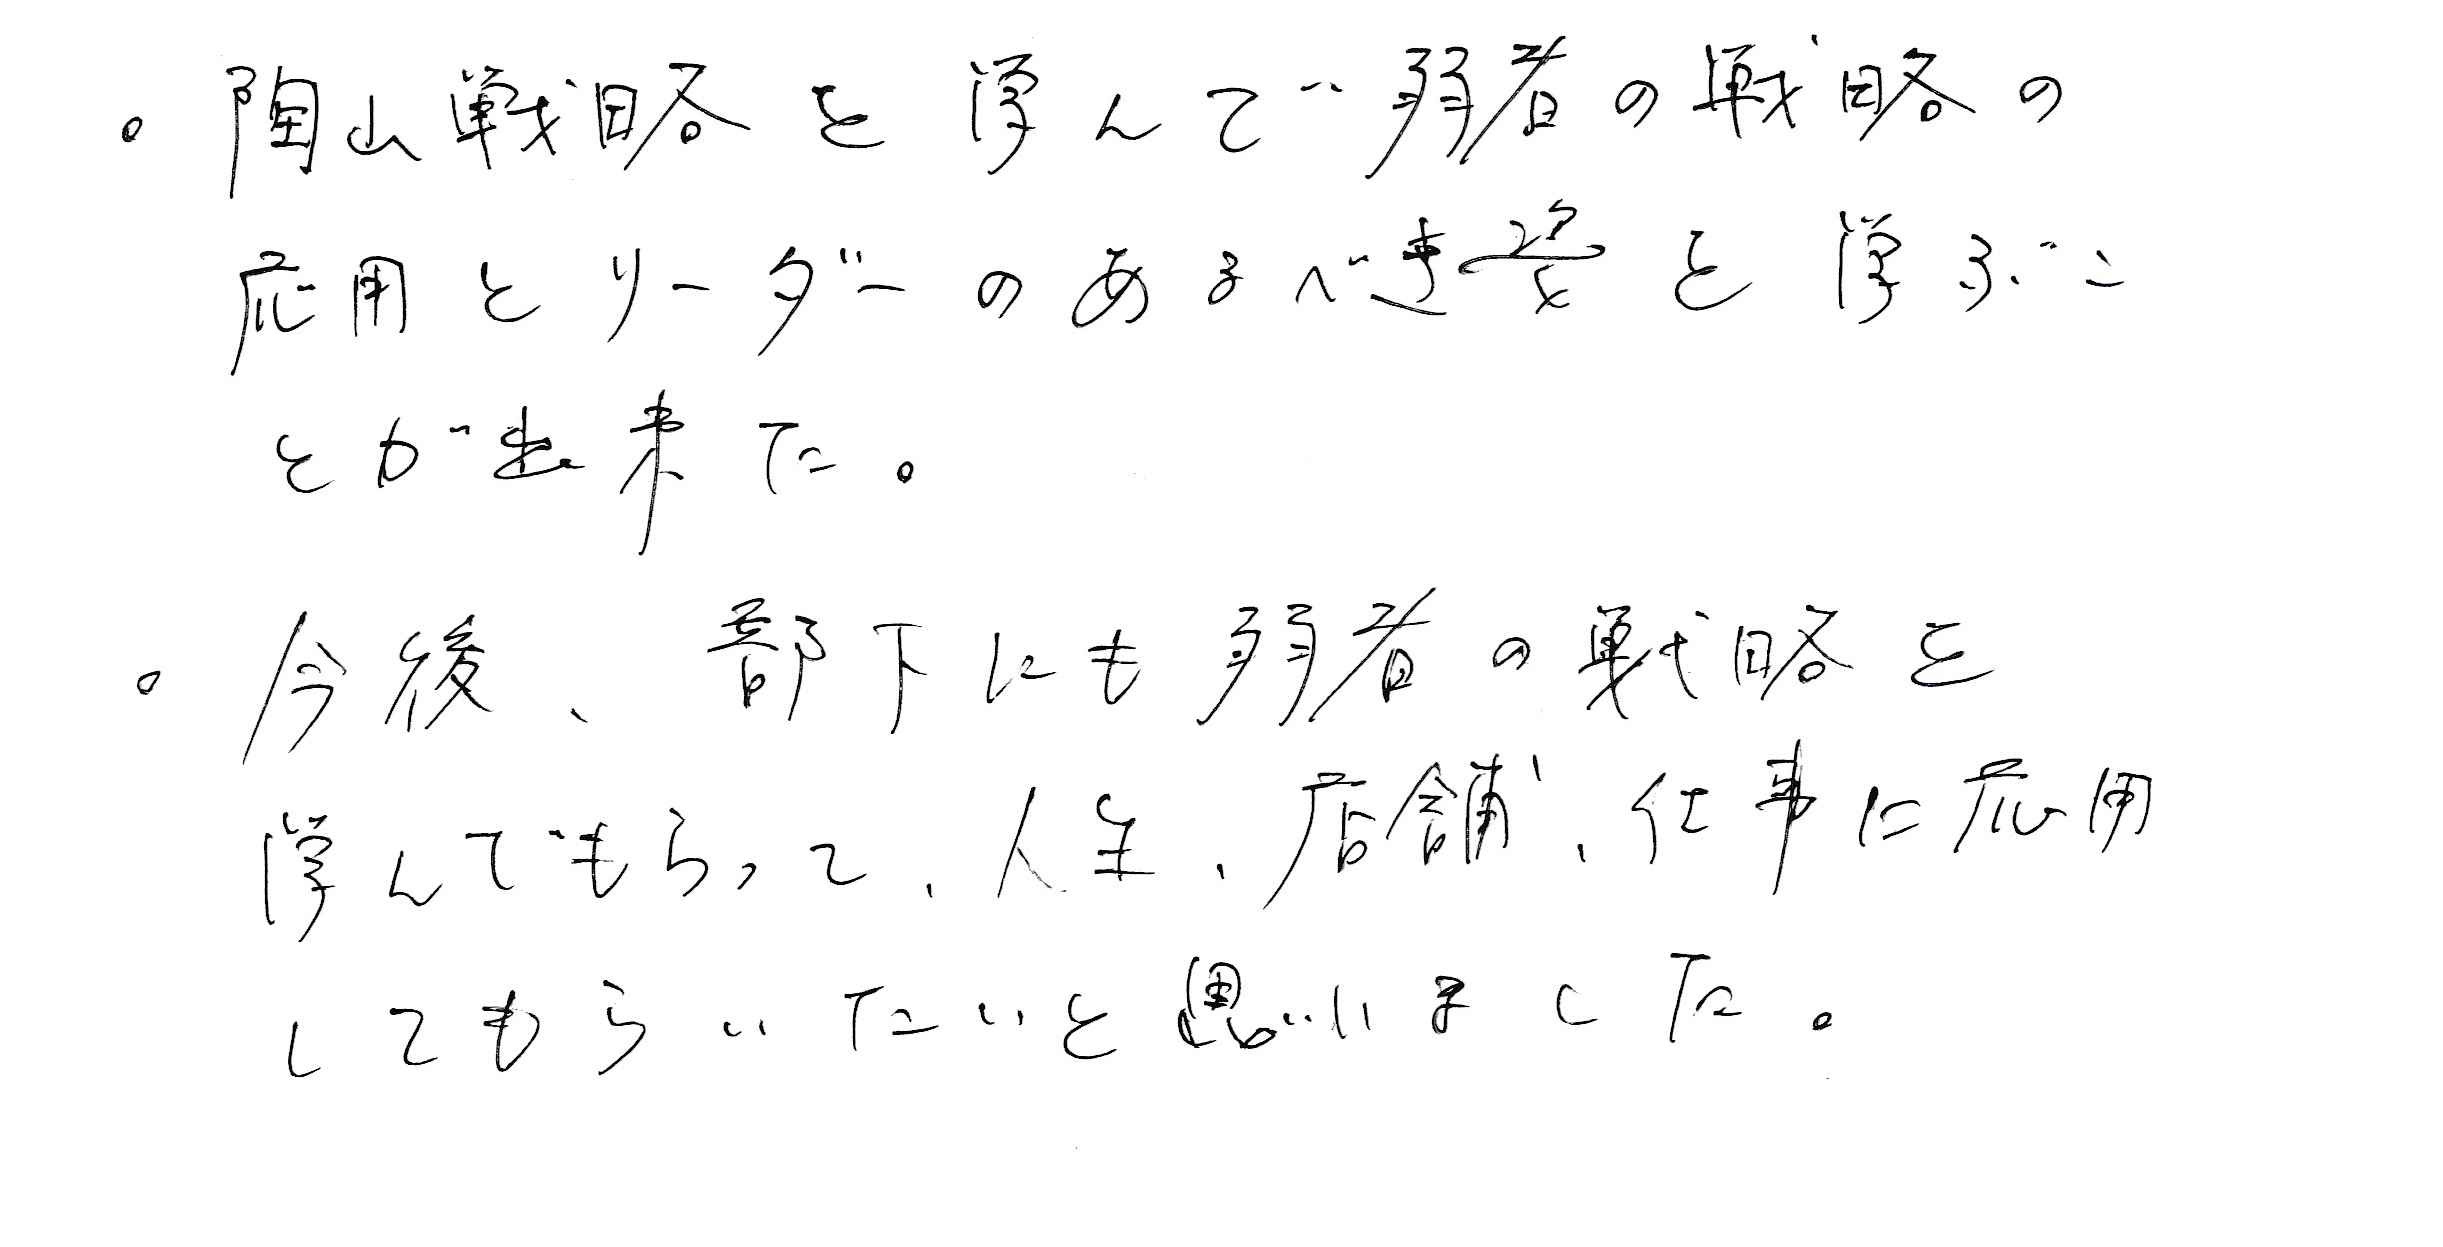 。陶山戦略を学んで弱者の戦略の
応用とリーダーのあるべき姿を学ぶこ
とが出来た。
。今後、部下にも弱者の戦略を
学んでもらって、人生、店舗、仕事に応用
してもらいたいと思いました。